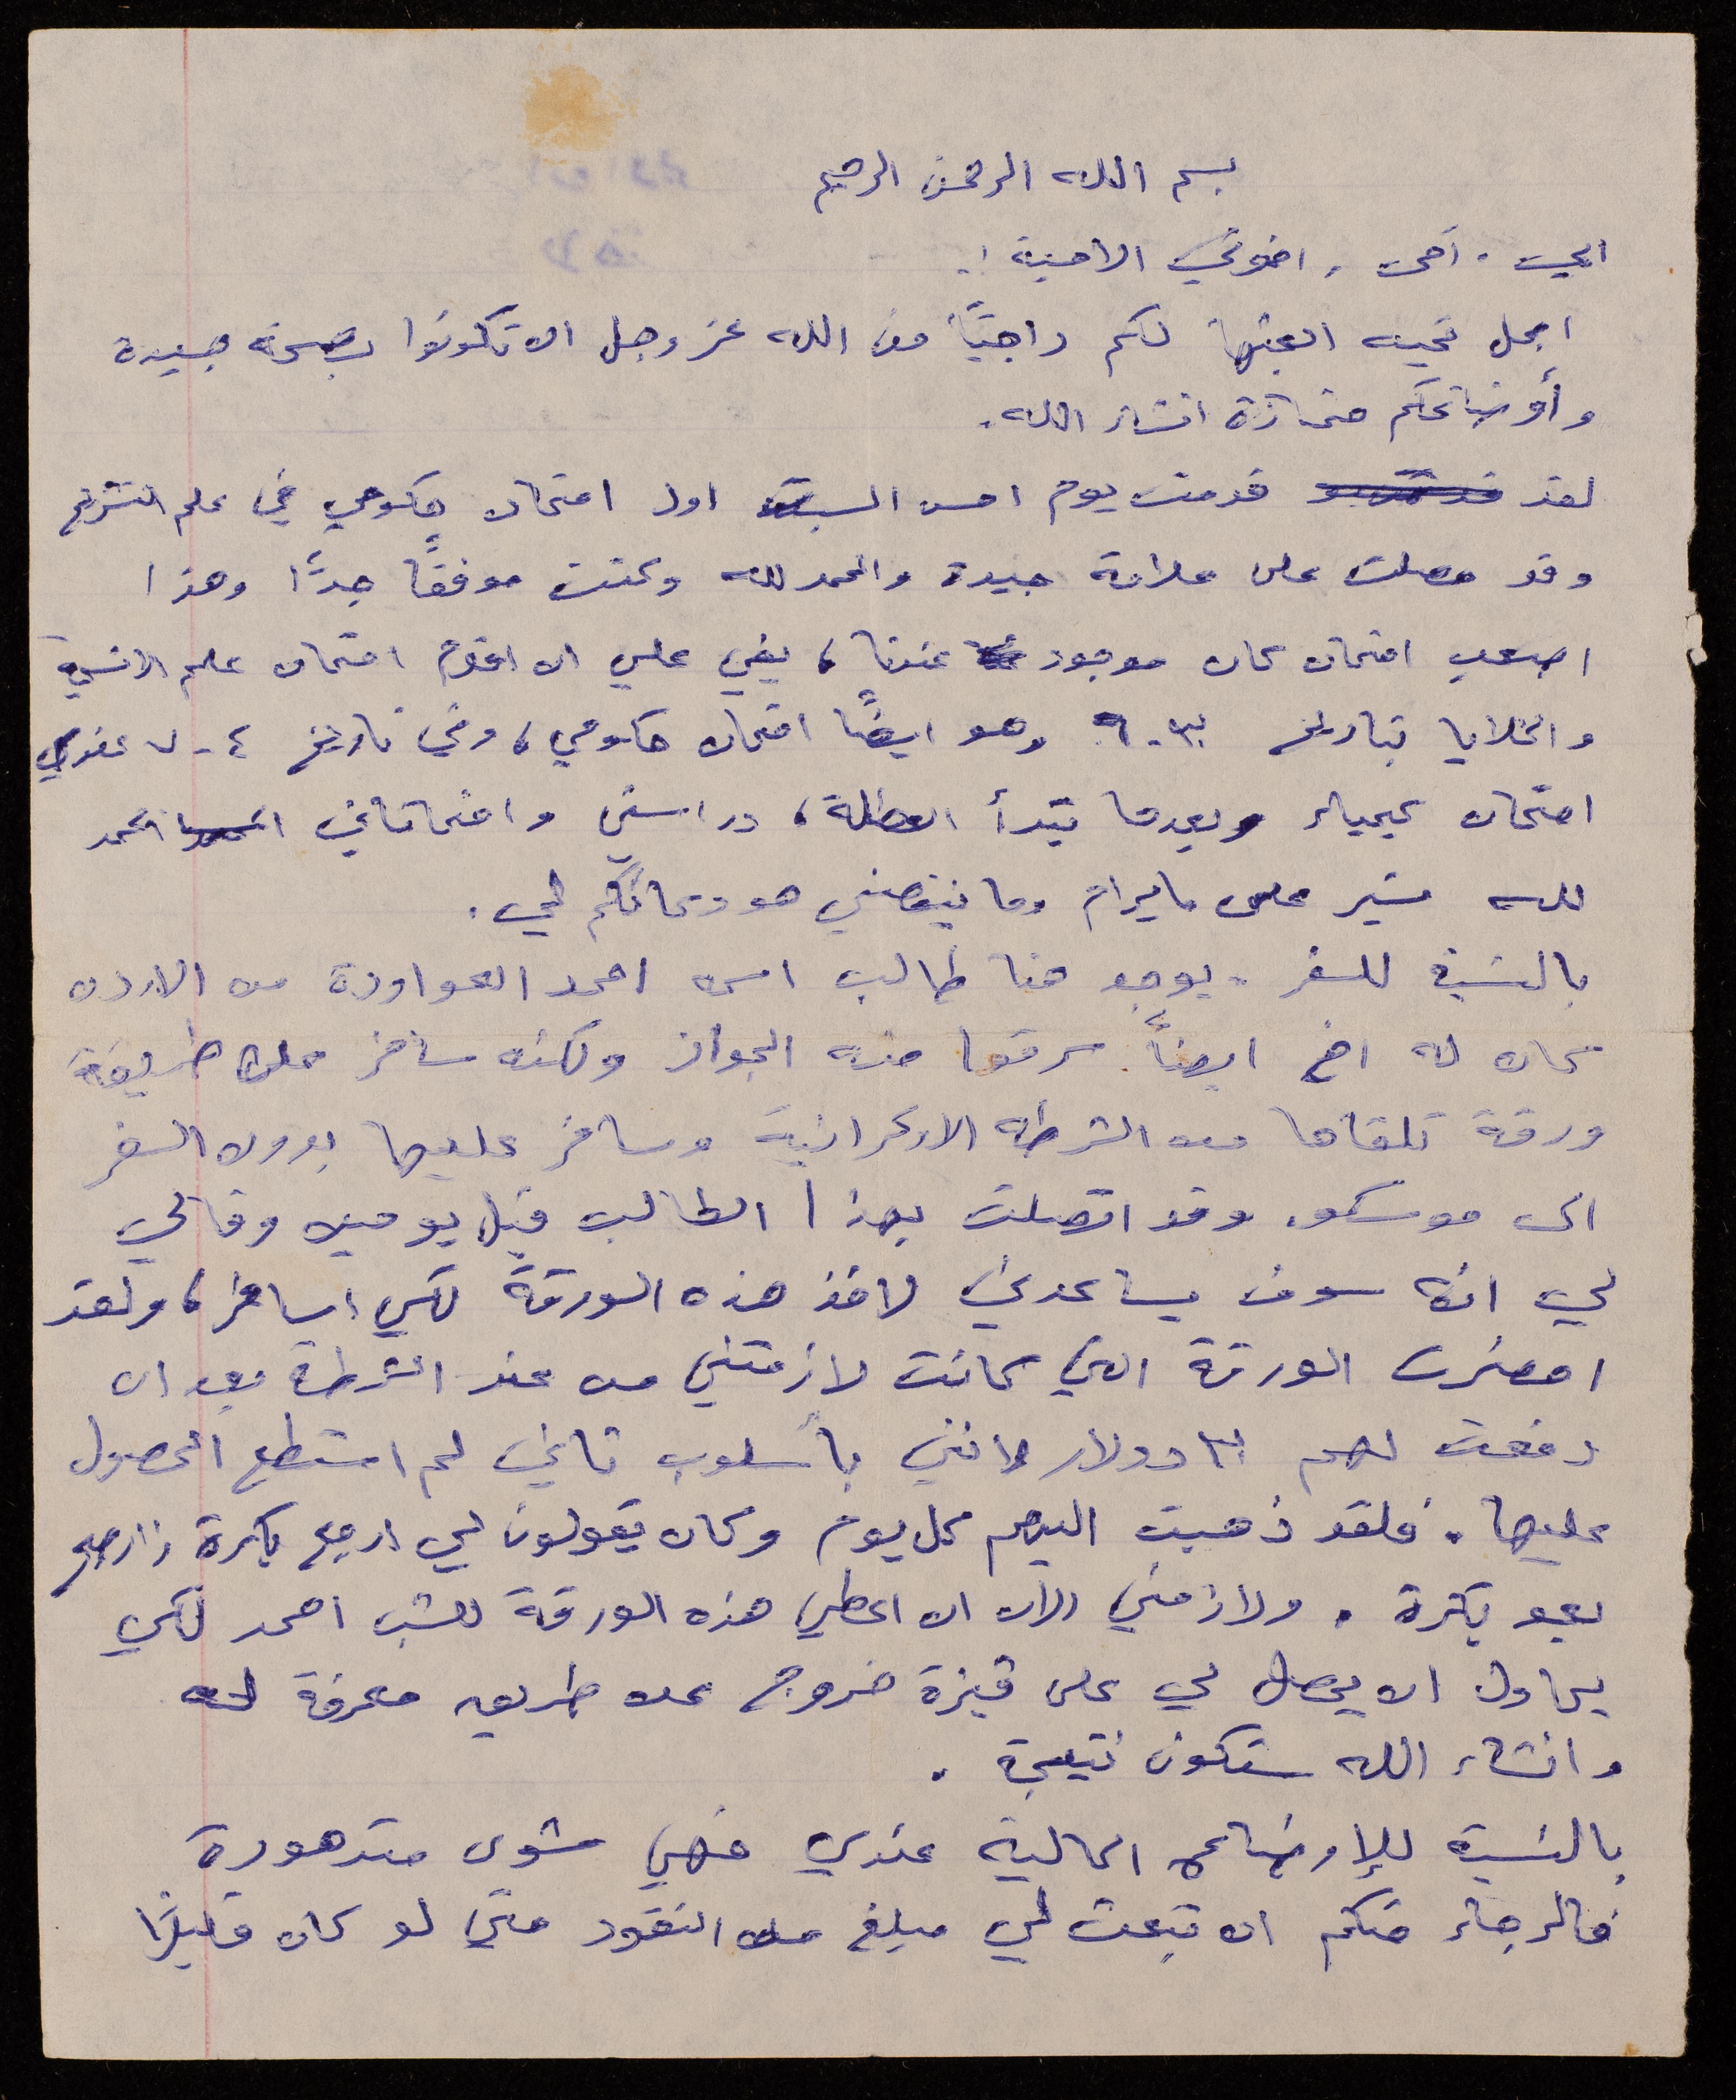 بسم الله الرحمن الرحيم
ابي، أمي، اخوتي الاحبة!
اجمل تحيه ابعثها لكم راجيًا من الله عز وجل ان تكونوا بصحة جيدة
وأوضاعكم ممتازة انشاء الله.
لقد قدمت يوم امس السبت اول امتحان حكومي في علم التشريح
وقد حصلت على علامة جيدة والحمد لله وكنت موفقًا جدًا وهذا
اصعب امتحان كان موجود عندنا، بقي علي ان اقدم امتحان علم الانسجة
والخلايا بتاريخ ٣٠-٦ وهو ايضًا امتحان حكومي، وفي تاريخ ٤-٧ عندي
امتحان كيمياء وبعدها تبدأ العطلة، دراستي وامتحاناتي الحمد
لله تسير على ما يرام وما ينقصني هو دعائكم لي.
بالنسبة للسفر. يوجد هنا طالب اسمه احمد العواودة من الاردن
كان له اخ ايضاً سرقوا منه الجواز ولكنه سافر على طريقة
ورقة تلقاها من الشرطه الاوكرانية وسافر عليها بدون السفر
الى موسكو. وقد اتصلت بهذا الطالب قبل يومين وقال
لي انه سوف يساعدني لاخذ هذه الورقة لكي اسافر، ولقد
احضرت الورقة التي كانت لازمتني من عند الشرطة بعد ان
دفعت لهم دولار لانني بأسلوب ثاني لم استطع الحصول
عليها. فلقد ذهبت اليهم كل يوم وكان يقولون لي ارجع بكرة، ارجع
بعد بكرة. ولازمني الآن ان اعطي هذه الورقة للشب احمد لكي
يحاول ان يحصل لي على فيزة خروج عن طريق معرفة له
وانشاء الله ستكون نتيجة.
بالنسبة للاوضاع المالية عندي فهي شوي متدهورة
فالرجاء منكم ان تبعث لي مبلغ من النقود حتى لو كان قليلًا